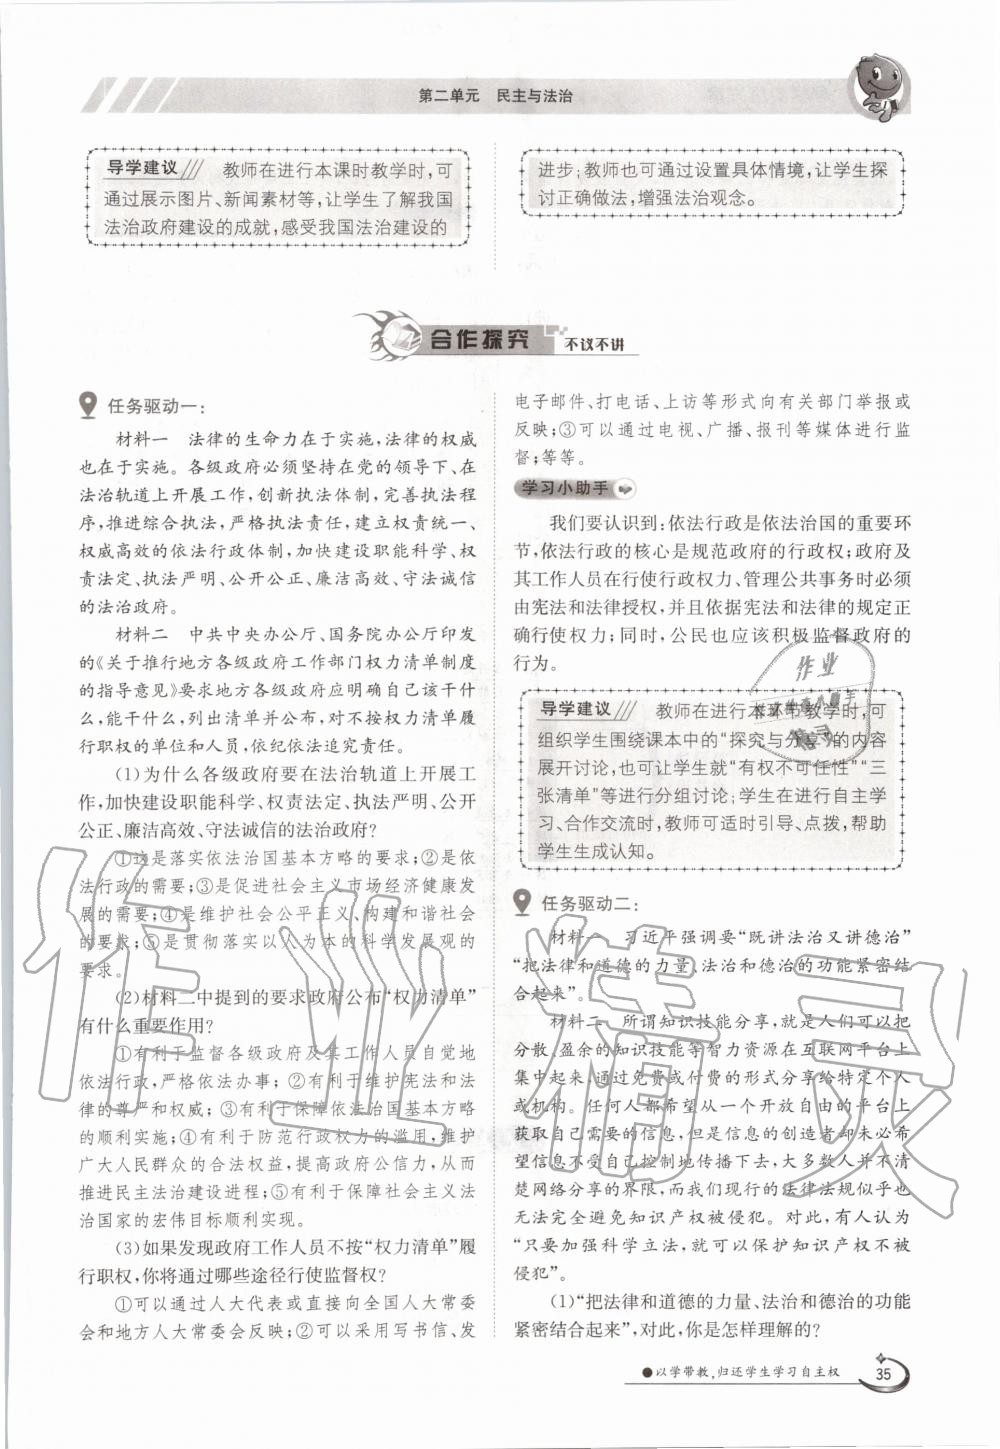 第二单元　民主与法治
导学建议　教师在进行本课时教学时,可
通过展示图片、新闻素材等,让学生了解我国
法治政府建设的成就,感受我国法治建设的
进步;教师也可通过设置具体情境,让学生探
讨正确做法,增强法治观念。
合作探究　不议不讲
任务驱动一:
材料一　法律的生命力在于实施,法律的权威
也在于实施。各级政府必须坚持在党的领导下、在
法治轨道上开展工作,创新执法体制,完善执法程
序,推进综合执法,严格执法责任,建立权责统一、
权威高效的依法行政体制,加快建设职能科学、权
责法定、执法严明、公开公正、廉洁高效、守法诚信
的法治政府。
材料二　中共中央办公厅、国务院办公厅印发
的《关于推行地方各级政府工作部门权力清单制度
的指导意见》要求地方各级政府应明确自己该干什
么,能干什么,列出清单并公布,对不按权力清单履
行职权的单位和人员,依纪依法追究责任。
(1)为什么各级政府要在法治轨道上开展工
作,加快建设职能科学、权责法定、执法严明、公开
公正、廉洁高效、守法诚信的法治政府?
①这是落实依法治国基本方略的要求;②是依
法行政的需要;③是促进社会主义市场经济健康发
展的需要;④是维护社会公平正义、构建和谐社会
的要求;⑤是贯彻落实以人为本的科学发展观的
要求。
(2)材料二中提到的要求政府公布“权力清单”
有什么重要作用?
①有利于监督各级政府及其工作人员自觉地
依法行政,严格依法办事;②有利于维护宪法和法
律的尊严和权威;③有利于保障依法治国基本方略
的顺利实施;④有利于防范行政权力的滥用,维护
广大人民群众的合法权益,提高政府公信力,从而
推进民主法治建设进程;⑤有利于保障社会主义法
治国家的宏伟目标顺利实现。
(3)如果发现政府工作人员不按“权力清单”履
行职权,你将通过哪些途径行使监督权?
①可以通过人大代表或直接向全国人大常委
会和地方人大常委会反映;②可以采用写书信、发
电子邮件、打电话、上访等形式向有关部门举报或
反映;③可以通过电视、广播、报刊等媒体进行监
督;等等。
学习小助手
我们要认识到:依法行政是依法治国的重要环
节,依法行政的核心是规范政府的行政权;政府及
其工作人员在行使行政权力、管理公共事务时必须
由宪法和法律授权,并且依据宪法和法律的规定正
确行使权力;同时,公民也应该积极监督政府的
行为。
导学建议　教师在进行本环节教学时,可
组织学生围绕课本中的“探究与分享”的内容
展开讨论,也可让学生就“有权不可任性”“三
张清单”等进行分组讨论;学生在进行自主学
习、合作交流时,教师可适时引导、点拨,帮助
学生生成认知。
任务驱动二:
材料一　习近平强调要“既讲法治又讲德治”
“把法律和道德的力量、法治和德治的功能紧密结
合起来”。
材料二　所谓知识技能分享,就是人们可以把
分散、盈余的知识技能等智力资源在互联网平台上
集中起来,通过免费或付费的形式分享给特定个人
或机构。任何人都希望从一个开放自由的平台上
获取自己需要的信息,但是信息的创造者却未必希
望信息不受自己控制地传播下去,大多数人并不清
楚网络分享的界限,而我们现行的法律法规似乎也
无法完全避免知识产权被侵犯。对此,有人认为
“只要加强科学立法,就可以保护知识产权不被
侵犯”。
(1)“把法律和道德的力量、法治和德治的功能
紧密结合起来”,对此,你是怎样理解的?
●以学带教,归还学生学习自主权
35
作业精灵
作业